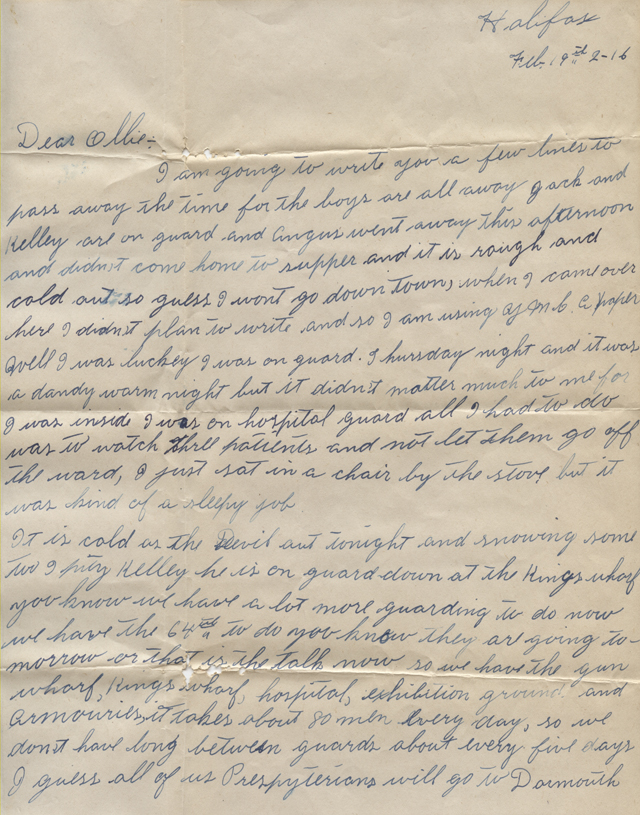 Halifax
Feb. 19th 2-16
Dear Ollie:-
I am going to write you a few lines to
pass away the time for the boys are all away Jack and
Kelley are on guard and Angus went away this afternoon
and didn't come home to supper and it is rough and
cold out so guess I wont go down town, when I came over
here I didn't plan to write and so I am using Y.M.C.A. Paper
Well I was luckey I was on guard. Thursday night and it was
a dandy warm night but it didn't matter much to me for
I was inside I was on hospital guard all I had to do
was to watch three patients and not let them go off
the ward, I just sat in a chair by the stove but it
was kind of a sleepy job
It is cold as the Devil out tonight and snowing some
too I pity Kelley he is on guard down at the Kings wharf
you know we have a lot more guarding to do now
we have the 64th to do you know they are going to-
morrow or that is the talk now so we have the gun
wharf, Kings wharf, hospital, exhibition ground and
armouries, it takes about 80 men every day, so we
don't have long between guards about every five days
I guess all of us Prespyterians will go to Darmouth